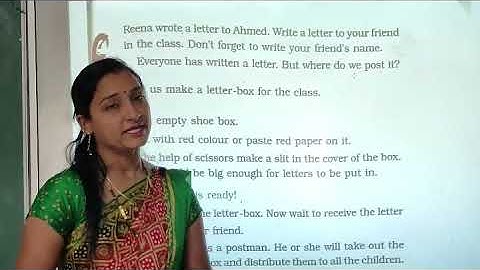 Reena wrote a letter to Ahmed. Write a letter to your friend
in the class. Don't forget to write your friend's name.
Everyone has written a letter. But where do we post it?
us make a letter-box for the class.
empty shoe box.
with red colour or paste red paper on it.
help of scissors make a slit in the cover of the box.
be big enough for letters to be put in.
ready!
the letter-box. Now wait to receive the letter
friend.
a postman. He or she will take out the
and distribute them to all the children.